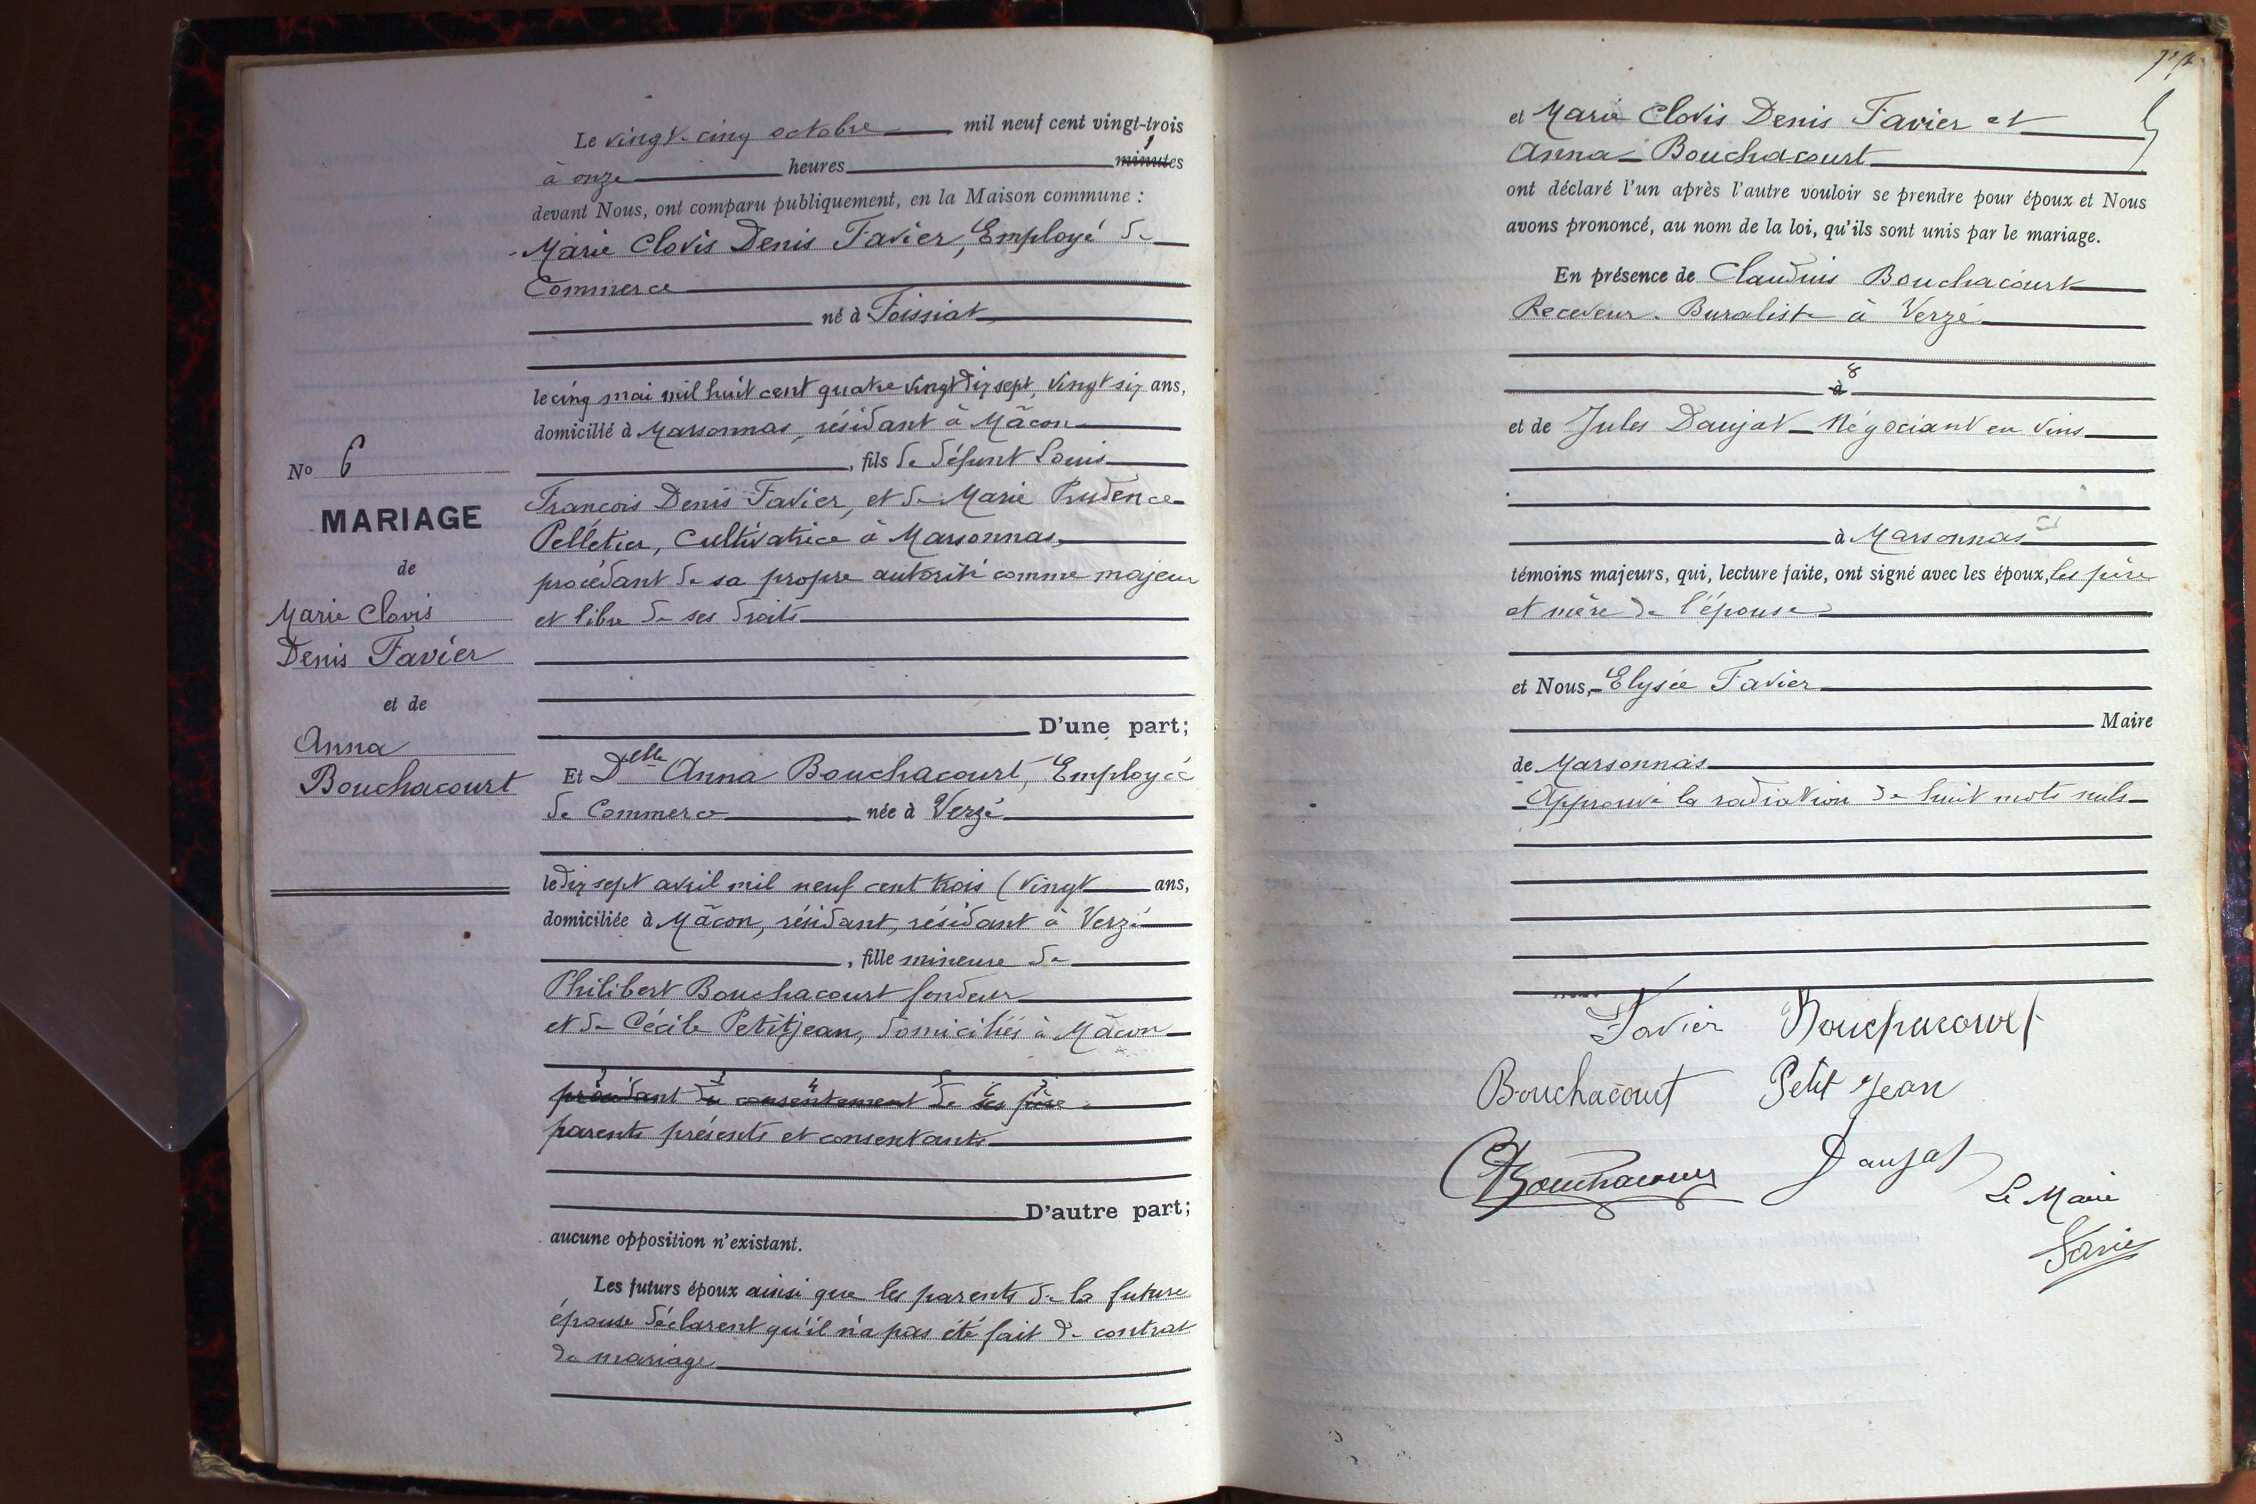 Le vingt-cinq octobre mil neuf cent vingt-trois
à onze heures minutes 1
devant Nous, ont comparu publiquement, en la Maison commune :
Marie Clovis Denis Favier, Employé de
Commerce
né à Foissiat
le cinq mai mil huit cent quatre vingt dix sept, vingt six ans,
domicilié à Marsonnas, résidant à Mâcon
, fils de défunt Louis
François Denis Favier, et de Marie Prudence
Pelletier, cultivatrice à Marsonnas,
procédant de sa propre autorité comme majeur
et libre de ses droits
D'une part;
Et Delle Anna Bouchacourt, Employée
de Commerce née à Verzé
le dix sept avril mil neuf cent trois (vingt ans,
domiciliée à Mâcon, résidant, résidant à Verzé
, fille mineure de
Philibert Bouchacourt fondeur
et de Cécile Petitjean, domiciliés à Mâcon
procédant du consentement de ses père
parents présents et consentants
D'autre part;
aucune opposition n'existant.
Les futurs époux ainsi que les parents de la future
épouse déclarent qu'il n'a pas été fait de contrat
de mariage
No 6
MARIAGE
de
Marie Clovis
Denis Favier
et de
Anna
Bouchacourt
et Marie Clovis Denis Favier et
Anna Bouchacourt
ont déclaré l'un après l'autre vouloir se prendre pour époux et Nous
avons prononcé, au nom de la loi, qu'ils sont unis par le mariage.
En présence de Claudius Bouchacourt
Receveur-Buraliste à Verzé
8
à
et de Jules Daujat Négociant en vins
à Marsonnas
témoins majeurs, qui, lecture faite, ont signé avec les époux, les père
et mère de l'épouse
et Nous, Elysée Favier
Maire
de Marsonnas
Approuvé la radiation de huit mots nuls
Favier Bouchacourt
Bouchacourt Petit Jean
CBouchacourt Daujat
Le Maire
Favier